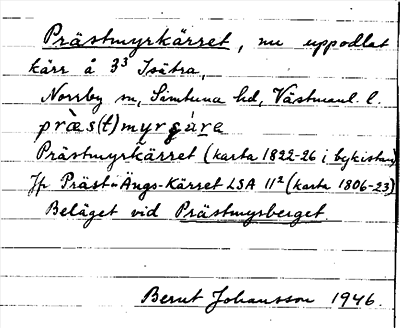 Prästmyrkärret, nu uppodlat
kärr å 3³ Isätra,
Norrby sn, Simtuna hd, Västmanl. l.
præ̀s(t)myrçà̀re
Prästmyrkärret (karta 1822-26 i bykistan)
Jfr Präst-Ängs-Kärret LSA 11² (karta 1806-23)
Beläget vid Prästmyrberget.
Bernt Johansson 1946.